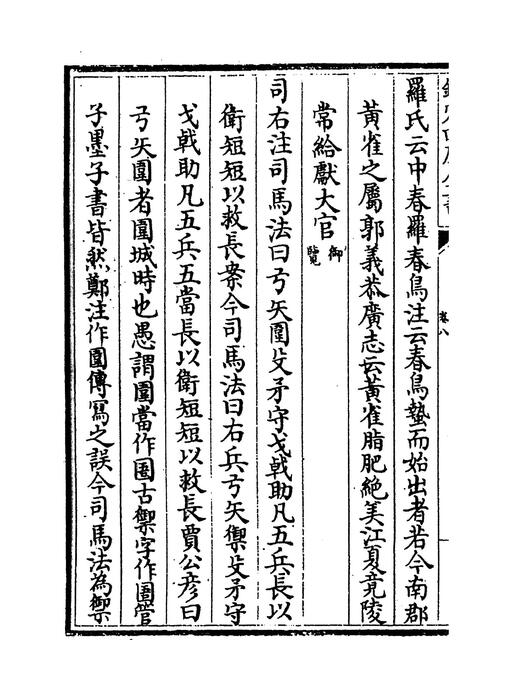 羅氏云中春羅春鳥注云春鳥蟄而始出者若今南郡
黄雀之屬郭義恭廣志云黄雀脂肥絶美江夏竟陵
常給獻大官御覽
司右注司馬法曰弓矢圍殳矛守戈戟助凡五兵長以
衛短短以救長案今司馬法曰右兵弓矢禦殳矛守
戈戟助凡五兵五當長以衛短短以救長賈公彦曰
弓矢圍者圍城時也愚謂圍當作圉古禦字作圉管
子墨子書皆然鄭注作圍傳寫之誤今司馬法為禦
卷八